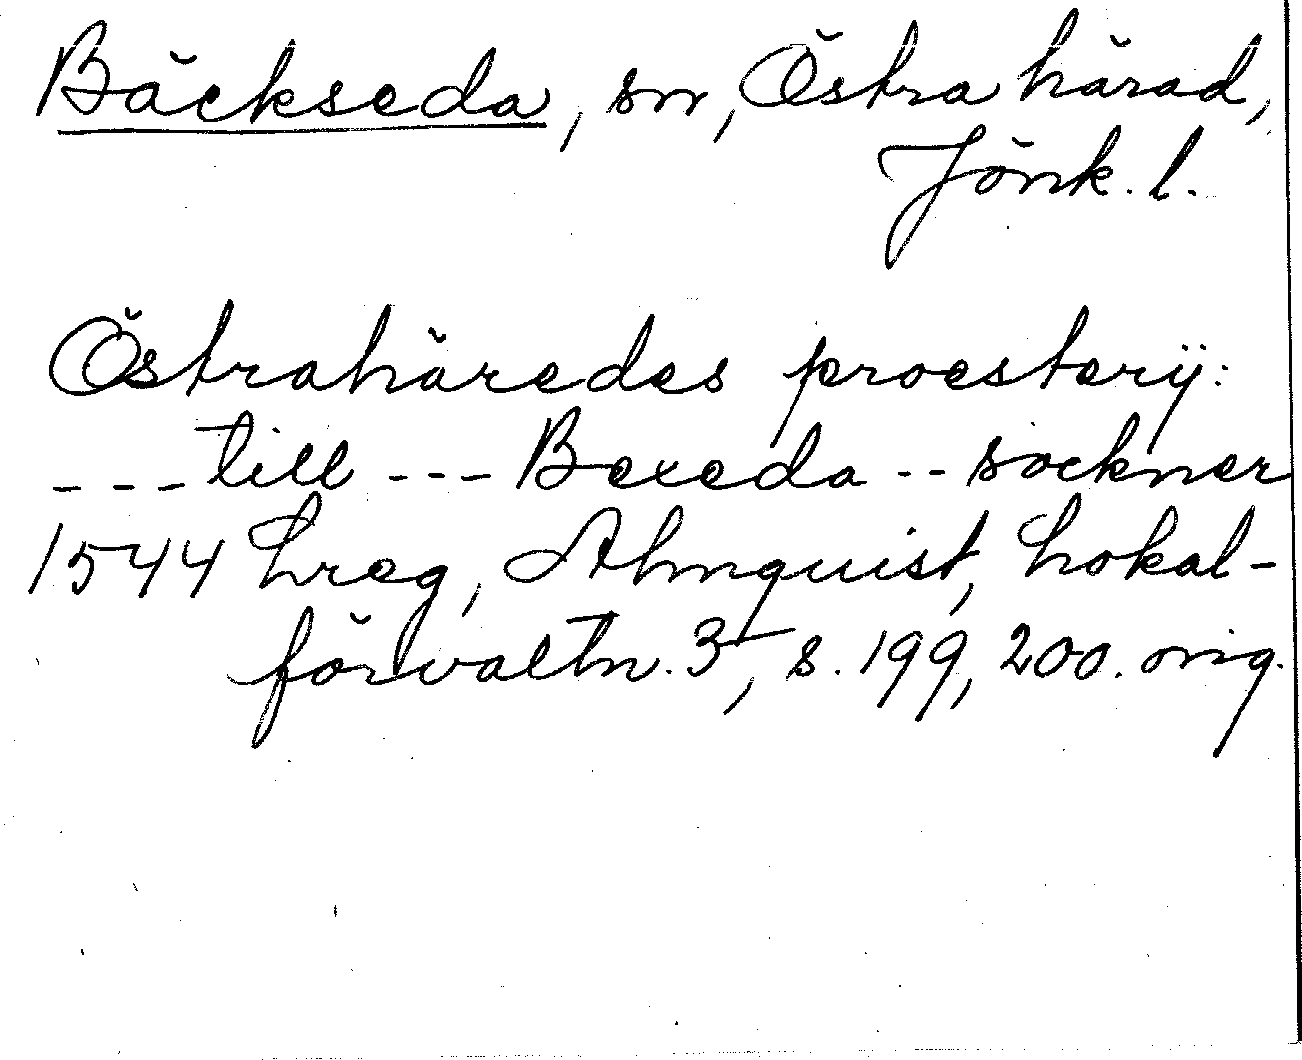 Bäckseda, sn, Östra härad,
Jönk. l.
Östrahäredes proesterÿ:
---till --- Bexeda -- sockner
1544 hreg, Almquist, Lokal-
förvaltn. 3, s. 199, 200. orig.